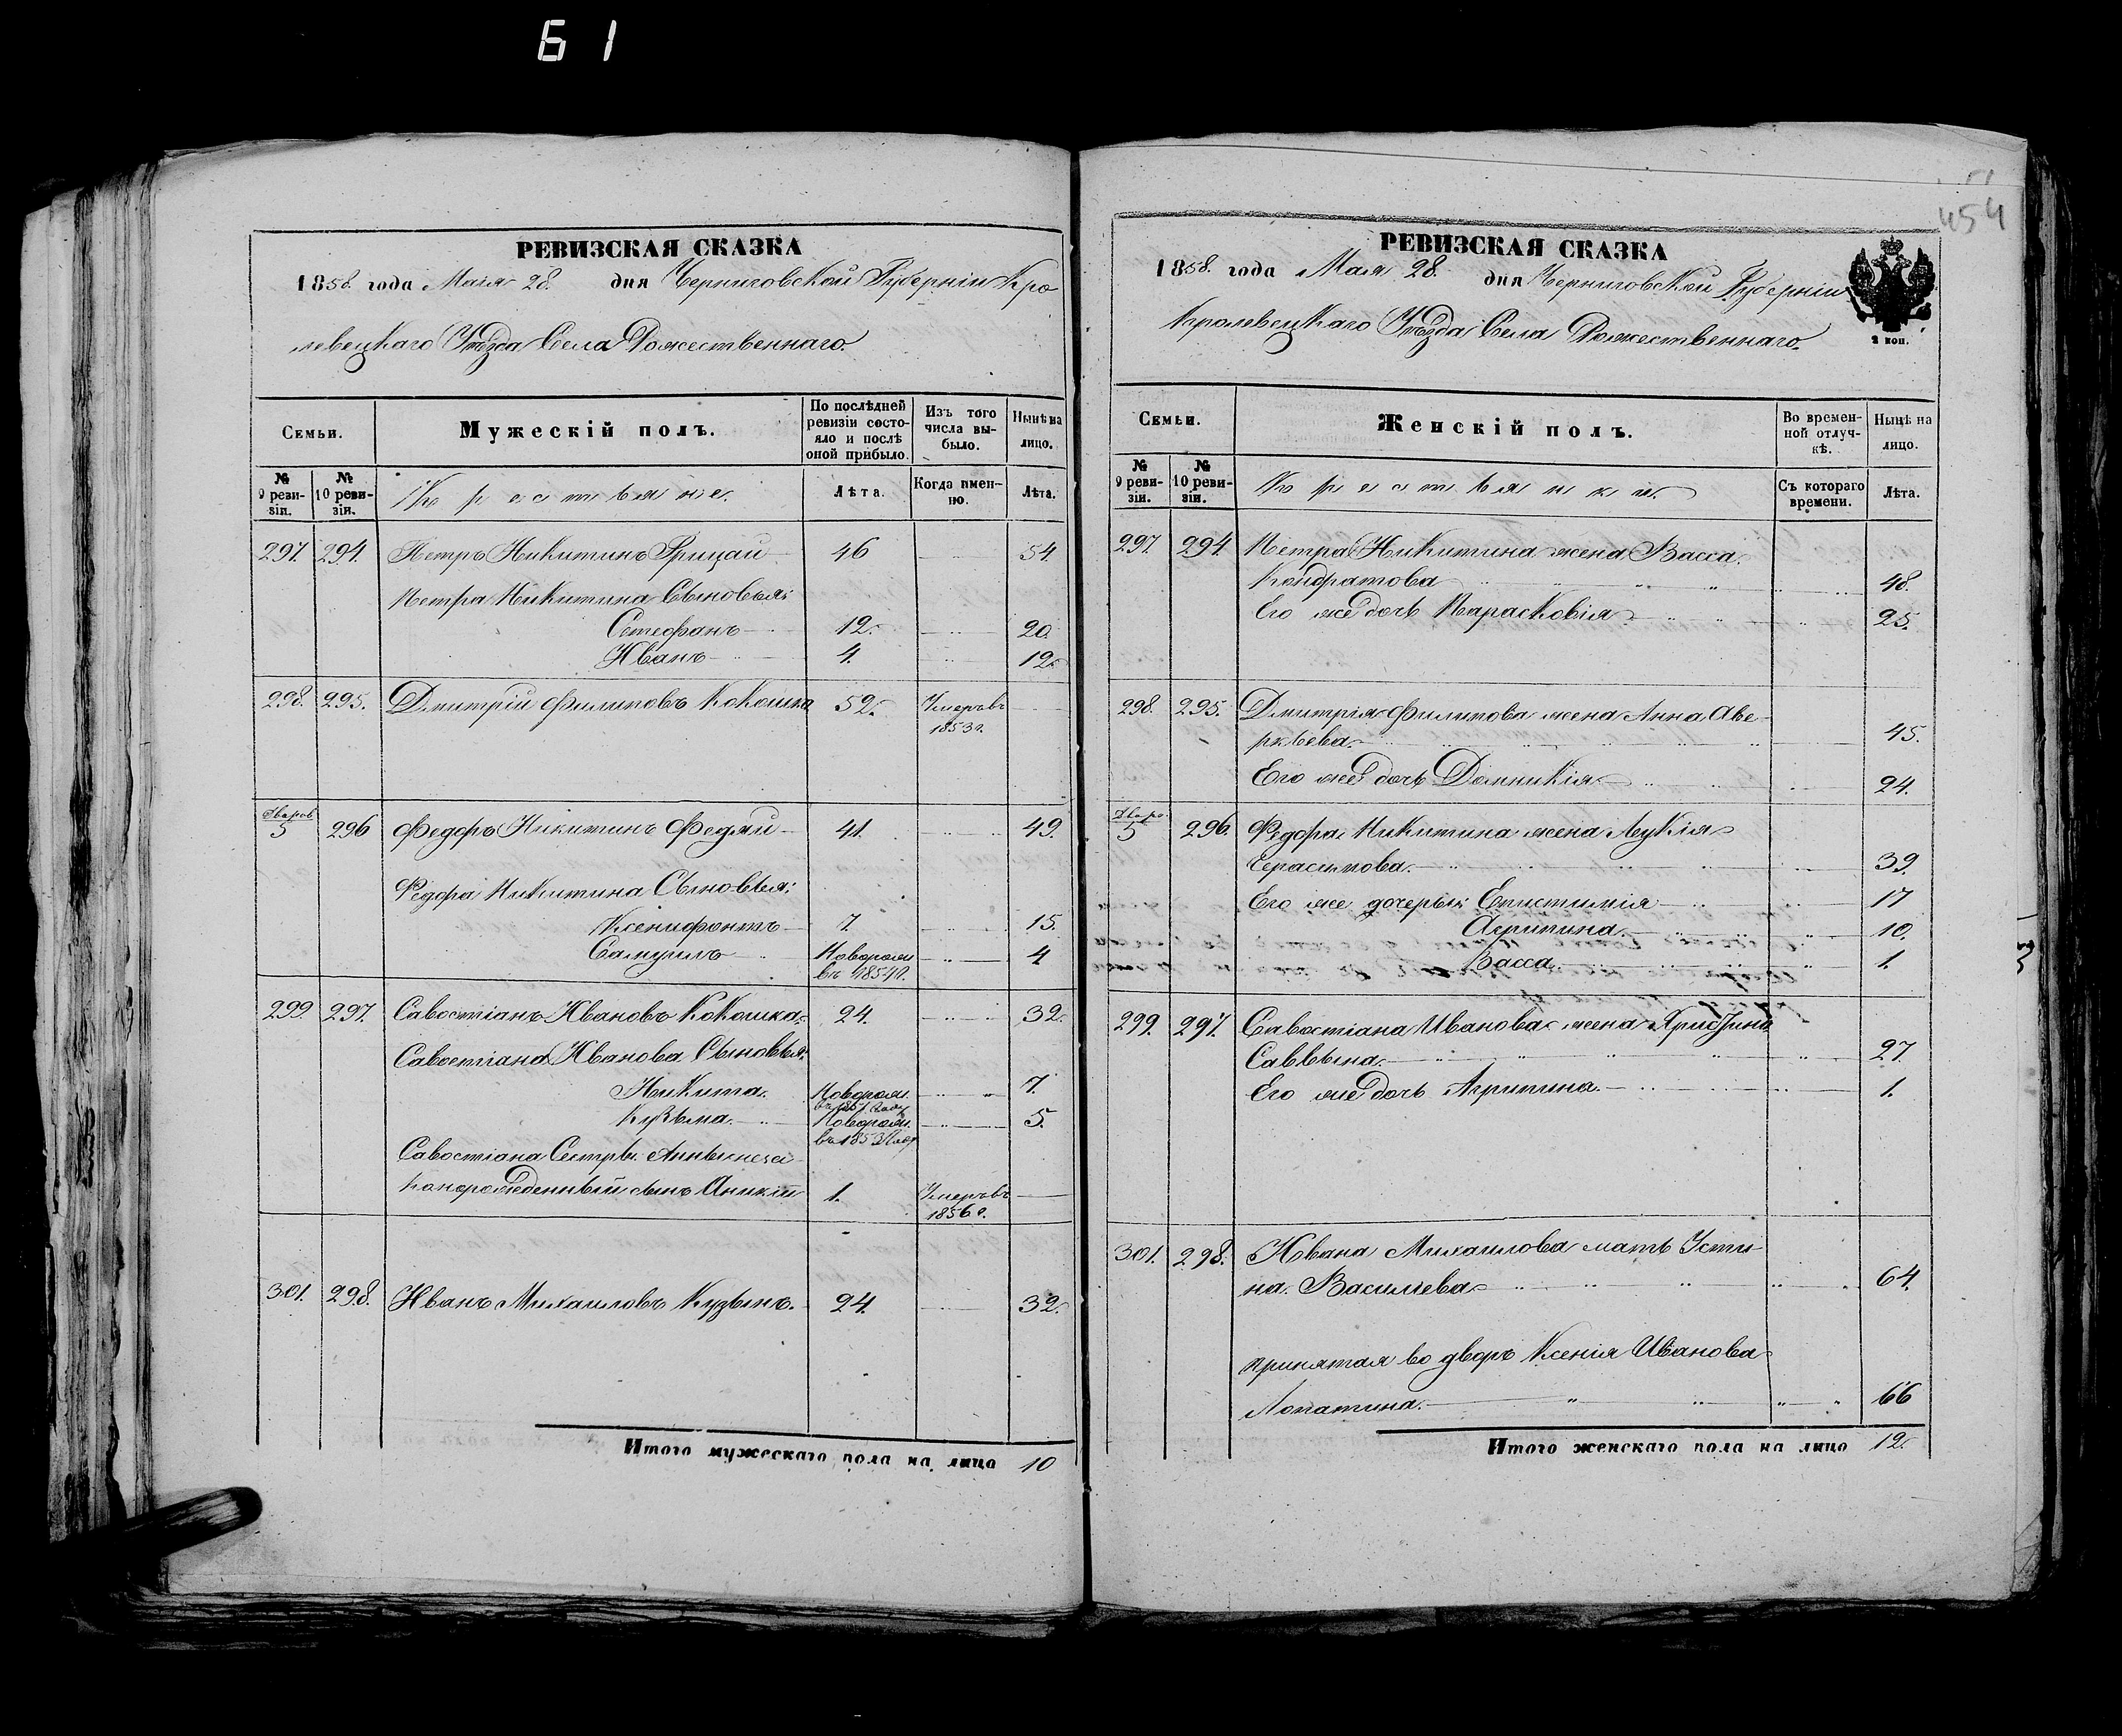 61
454
РЕВИЗСКАЯ СКАЗКА
1858. года Маія 28. дня Черниговской Губерніи Кро
левецкаго Уѣзда Села Рожественнаго.
Семьи.
Мужескій полъ.
По послѣдней ревизіи состояло и послѣ оной прибыло.
Изъ того числа выбыло.
Нынѣ на лицо.
№ 9 ревизіи.
№ 10 ревизіи.
Крестьяне.
Лѣта.
Когда именно.
Лѣта.
297. 294. Петръ Никитинъ Грицай 46 54.
Петра Никитина Сыновья:
Стефанъ 12. 20.
Иванъ 4. 12.
298. 295. Дмитрій Филиповъ Кокошка 52. Умеръ въ
1853г.
5 296 Федоръ Никитинъ Федяй 41. 49.
Федора Никитина Сыновья:
Ксенифонтъ 7. 15.
Самуилъ Новорожд 4
въ 1854г.
299. 297. Савостіанъ Ивановъ Кокошка. 24. 32.
Савостіана Иванова Сыновья:
Никита. Новорож. 7.
Кузьма. Новорож. 5.
въ 1853
Савостіана Сестры Анны неза
конорожденный сынъ 1. Умеръ въ
1856г.
301. 298. Иванъ Михаиловъ Кузьинъ. 24. 32.
Итого мужескаго пола на лицо 10
РЕВИЗСКАЯ СКАЗКА
1858. года Маія 28. дня Черниговской Губерніи
Кролевецкаго Уѣзда Села Рожественнаго.
2 коп.
Семьи.
Женскій полъ.
Во временной отлучкѣ.
Нынѣ на лицо.
№ 9 ревизіи.
№ 10 ревизіи.
Крестьянки.
Съ котораго времени.
Лѣта.
297. 294 Петра Никитина жена Васса
Кондратова 48.
Его же дочь Парасковія 25.
298. 295. Дмитрія Филипова жена Анна Аве-
ркіева. 45.
Его же дочь Домникія 24.
5 296. Федора Никитина жена Лукія
Герасимова. 39.
Его же дочери: Епистимія 17
Агрипина. 10.
Васса. 1.
299. 297. Савостіана Иванова жена Христина
Саввына. 27.
Его же дочь Агрипина. 1.
301. 298. Ивана Михаилова мать Усти-
на Василіева 64.
принятая во дворъ Ксенія Иванова
Лопатина. 66
Итого женскаго пола на лицо 12.